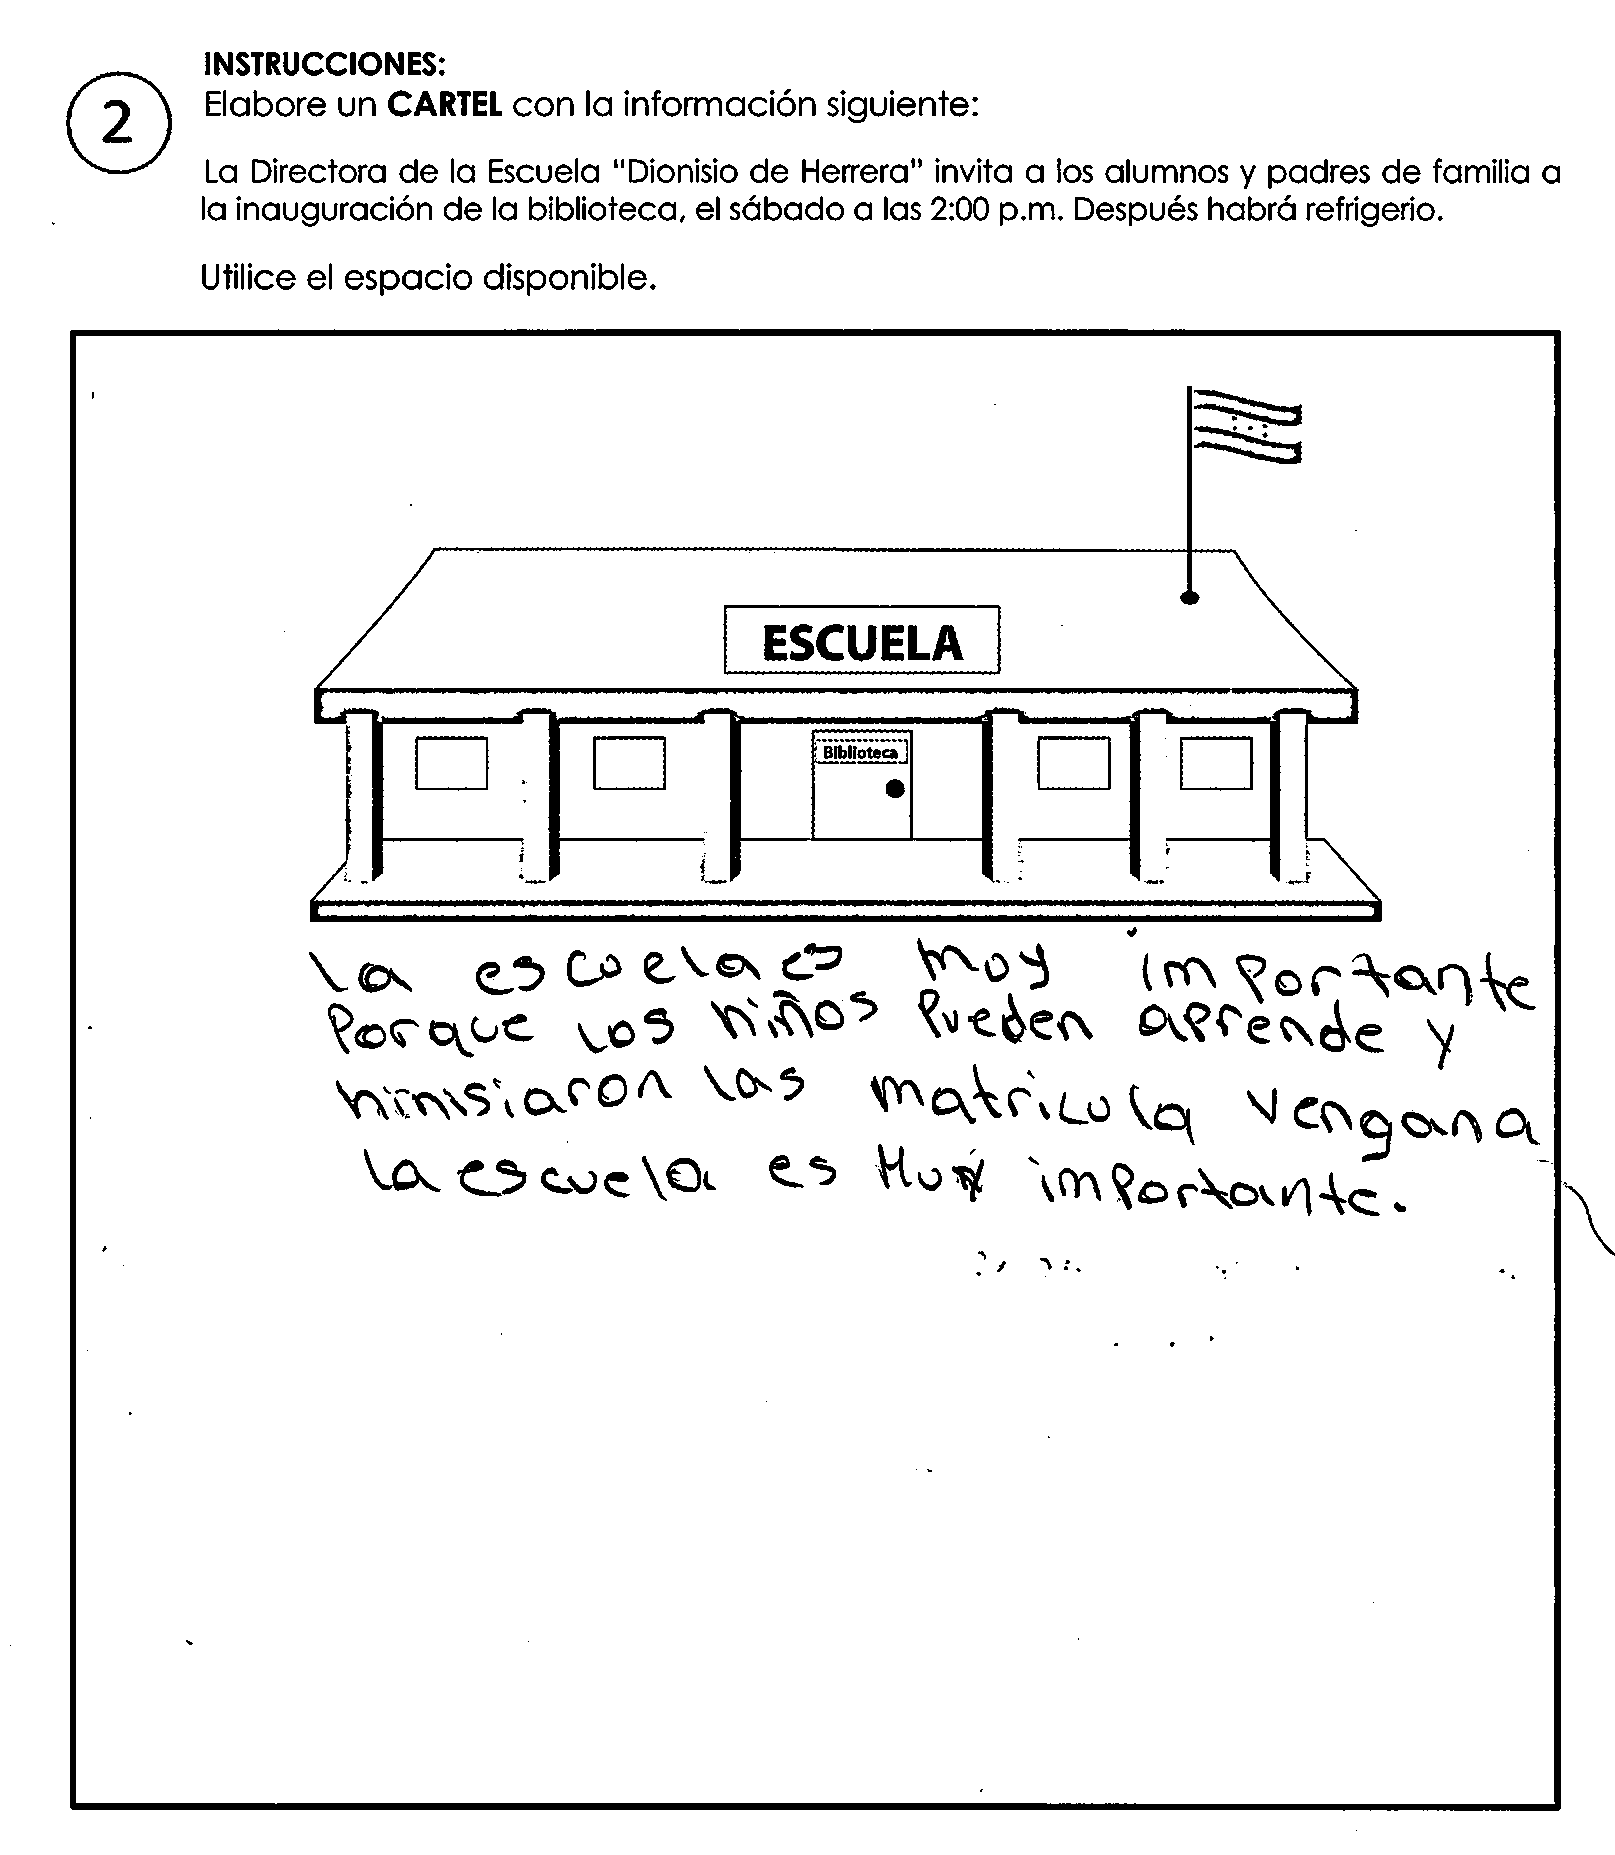 INSTRUCCIONES:
2
Elabore un CARTEL con la información siguiente:
La Directora de la Escuela "Dionisio de Herrera" invita a los alumnos y padres de familia a
la inauguración de la biblioteca, el sábado a las 2:00 p.m. Después habrá refrigerio.
Utilice el espacio disponible.
ESCUELA
Biblioteca
la escuela es moy importante
Porque los niños Pueden aprende y
las matricula vengan a
la escuela es Muy importante.